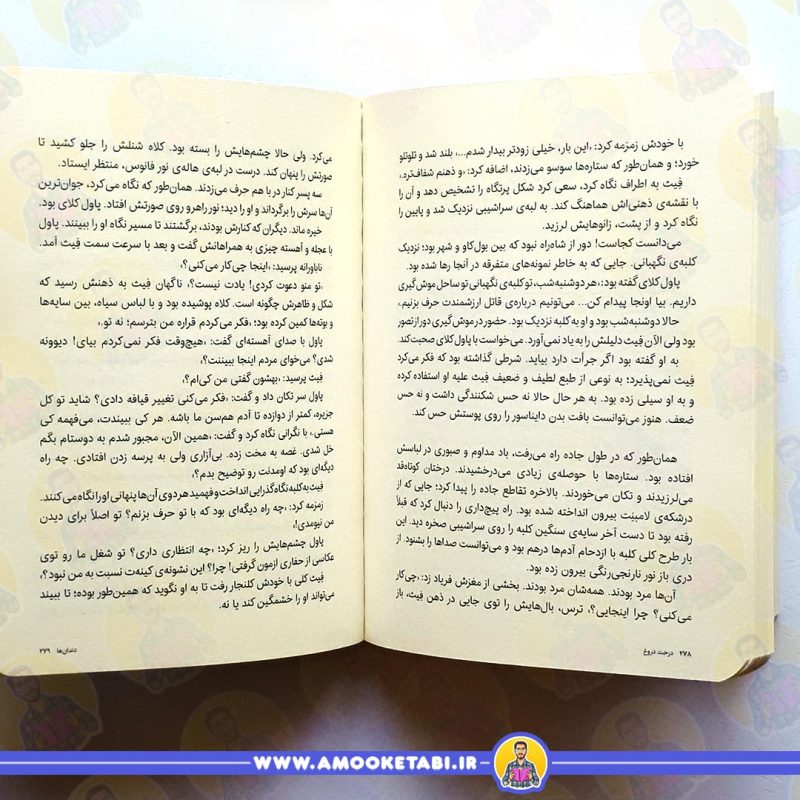 با خودش زمزمه کرد: «این بار، خیلی زودتر بیدار شدم...» بلند شد و تلوتلو
خورد؛ و همان‌طور که ستاره‌ها سوسو می‌زدند، اضافه کرد: «و ذهنم شفاف‌تره.»
فِیث به اطراف نگاه کرد، سعی کرد شکل پرتگاه را تشخیص دهد و آن را
با نقشه‌ی ذهنی‌اش هماهنگ کند. به لبه‌ی سراشیبی نزدیک شد و پایین را
نگاه کرد و از پشت، زانوهایش لرزید.
می‌دانست کجاست! دور از شاه‌راه نبود که بین بول‌کاو و شهر بود؛ نزدیک
کلبه‌ی نگهبانی. جایی که به خاطر نمونه‌های متفرقه در آنجا رها شده بود.
پاول کلای گفته بود: «هر دوشنبه‌شب، تو کلبه‌ی نگهبانی تو ساحل موش‌گیری
داریم. بیا اونجا پیدام کن... می‌تونیم درباره‌ی قاتل ارزشمندت حرف بزنیم.»
حالا دوشنبه‌شب بود و او به کلبه نزدیک بود. حضور در موش‌گیری دور از تصور
بود ولی الآن فِیث دلیلش را به یاد نمی‌آورد. می‌خواست با پاول کلای صحبت کند.
به او گفته بود اگر جرأت دارد بیاید. شرطی گذاشته بود که فکر می‌کرد
فِیث نمی‌پذیرد؛ به نوعی از طبع لطیف و ضعیف فِیث علیه او استفاده کرده
و به او سیلی زده بود. به هر حال حالا نه حس شکنندگی داشت و نه حس
ضعف. هنوز می‌توانست بافت بدن دایناسور را روی پوستش حس کند.
همان‌طور که در طول جاده راه می‌رفت، باد مداوم و صبوری در لباسش
افتاده بود. ستاره‌ها با حوصله‌ی زیادی می‌درخشیدند. درختان کوتاه‌قد
می‌لرزیدند و تکان می‌خوردند. بالاخره تقاطع جاده را پیدا کرد؛ جایی که از
درشکه‌ی لامبِنت بیرون انداخته شده بود. راه پیچ‌داری را دنبال کرد که قبلاً
رفته بود تا دست آخر سایه‌ی سنگین کلبه را روی سراشیبی صخره دید. این
بار طرح کلی کلبه با ازدحام آدم‌ها درهم بود و می‌توانست صداها را بشنود. از
دری باز نور نارنجی‌رنگی بیرون زده بود.
آن‌ها مرد بودند. همه‌شان مرد بودند. بخشی از مغزش فریاد زد: «چی‌کار
می‌کنی؟ چرا اینجایی؟» ترس، بال‌هایش را توی جایی در ذهن فِیث، باز
۲۷۸ درخت دروغ
می‌کرد. ولی حالا چشم‌هایش را بسته بود. کلاه شنلش را جلو کشید تا
صورتش را پنهان کند. درست در لبه‌ی هاله‌ی نور فانوس، منتظر ایستاد.
سه پسر کنار در با هم حرف می‌زدند. همان‌طور که نگاه می‌کرد، جوان‌ترین
آن‌ها سرش را برگرداند و او را دید؛ نور راهرو روی صورتش افتاد. پاول کلای بود.
خیره ماند. دیگران که کنارش بودند، برگشتند تا مسیر نگاه او را ببینند. پاول
با عجله و آهسته چیزی به همراهانش گفت و بعد با سرعت سمت فِیث آمد.
ناباورانه پرسید: «اینجا چی‌کار می‌کنی؟»
«تو منو دعوت کردی! یادت نیست؟» ناگهان فِیث به ذهنش رسید که
شکل و ظاهرش چگونه است. کلاه پوشیده بود و با لباس سیاه، بین سایه‌ها
و بوته‌ها کمین کرده بود؛ «فکر می‌کردم قراره من بترسم؛ نه تو.»
پاول با صدای آهسته‌ای گفت: «هیچ‌وقت فکر نمی‌کردم بیای! دیوونه
شدی؟ می‌خوای مردم اینجا ببیننت؟»
فِیث پرسید: «بهشون گفتی من کی‌ام؟»
پاول سر تکان داد و گفت: «فکر می‌کنی تغییر قیافه دادی؟ شاید تو کل
جزیره، کمتر از دوازده تا آدم هم‌سن ما باشه. هر کی ببیندت، می‌فهمه کی
هستی.» با نگرانی نگاه کرد و گفت: «همین الآن، مجبور شدم به دوستام بگم
خل شدی. غصه به مخت زده. بی‌آزاری ولی به پرسه زدن افتادی. چه راه
دیگه‌ای بود که اومدنت رو توضیح بدم؟»
فِیث به کلبه نگاه گذرایی انداخت و فهمید هر دوی آن‌ها پنهانی او را نگاه می‌کنند.
زمزمه کرد: «چه راه دیگه‌ای بود که با تو حرف بزنم؟ تو اصلاً برای دیدن
من نیومدی!»
پاول چشم‌هایش را ریز کرد؛ «چه انتظاری داری؟ تو شغل ما رو توی
عکاسی از حفاری ازمون گرفتی! چرا؟ این نشونه‌ی کینه‌ت نسبت به من نبود؟»
فِیث کلی با خودش کلنجار رفت تا به او نگوید که همین‌طور بوده؛ تا ببیند
می‌تواند او را خشمگین کند یا نه.
دندان‌ها ۲۷۹
WWW.AMOOKETABI.IR